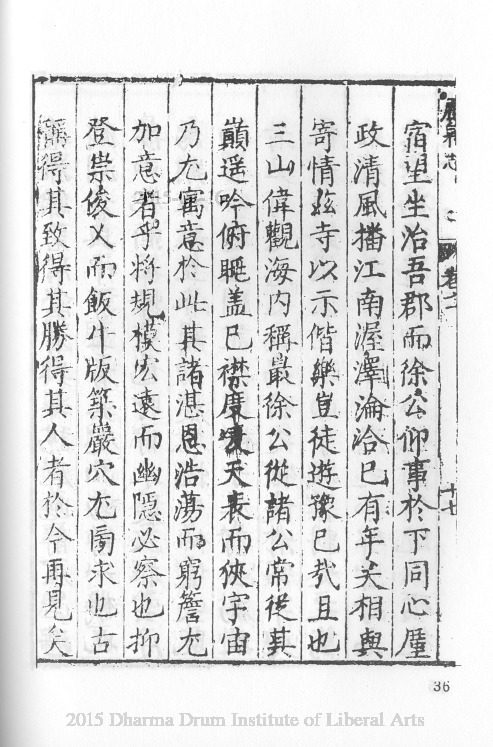 宿望坐治吾郡而徐公仰事於下同心厘
政清風播江南渥澤淪洽巳有年矣相與
寄情玆寺以示偕樂豈徒遊豫巳㢤且也
三山偉觀海内稱最徐公從諸公常從其
巔遥吟俯眺盖巳襟度天表而狹宇宙
乃尤寓意於此其諸湛恩浩蕩而窮簷尤
加意者乎將規模宏遠而幽隱必察也抑
登崇俊乂而飯牛版築巖穴尤勤求也古
稱得其致得其勝得其人者於今再見矣
卷之二
十七
36
2015 Dharma Drum Institute of Liberal Arts